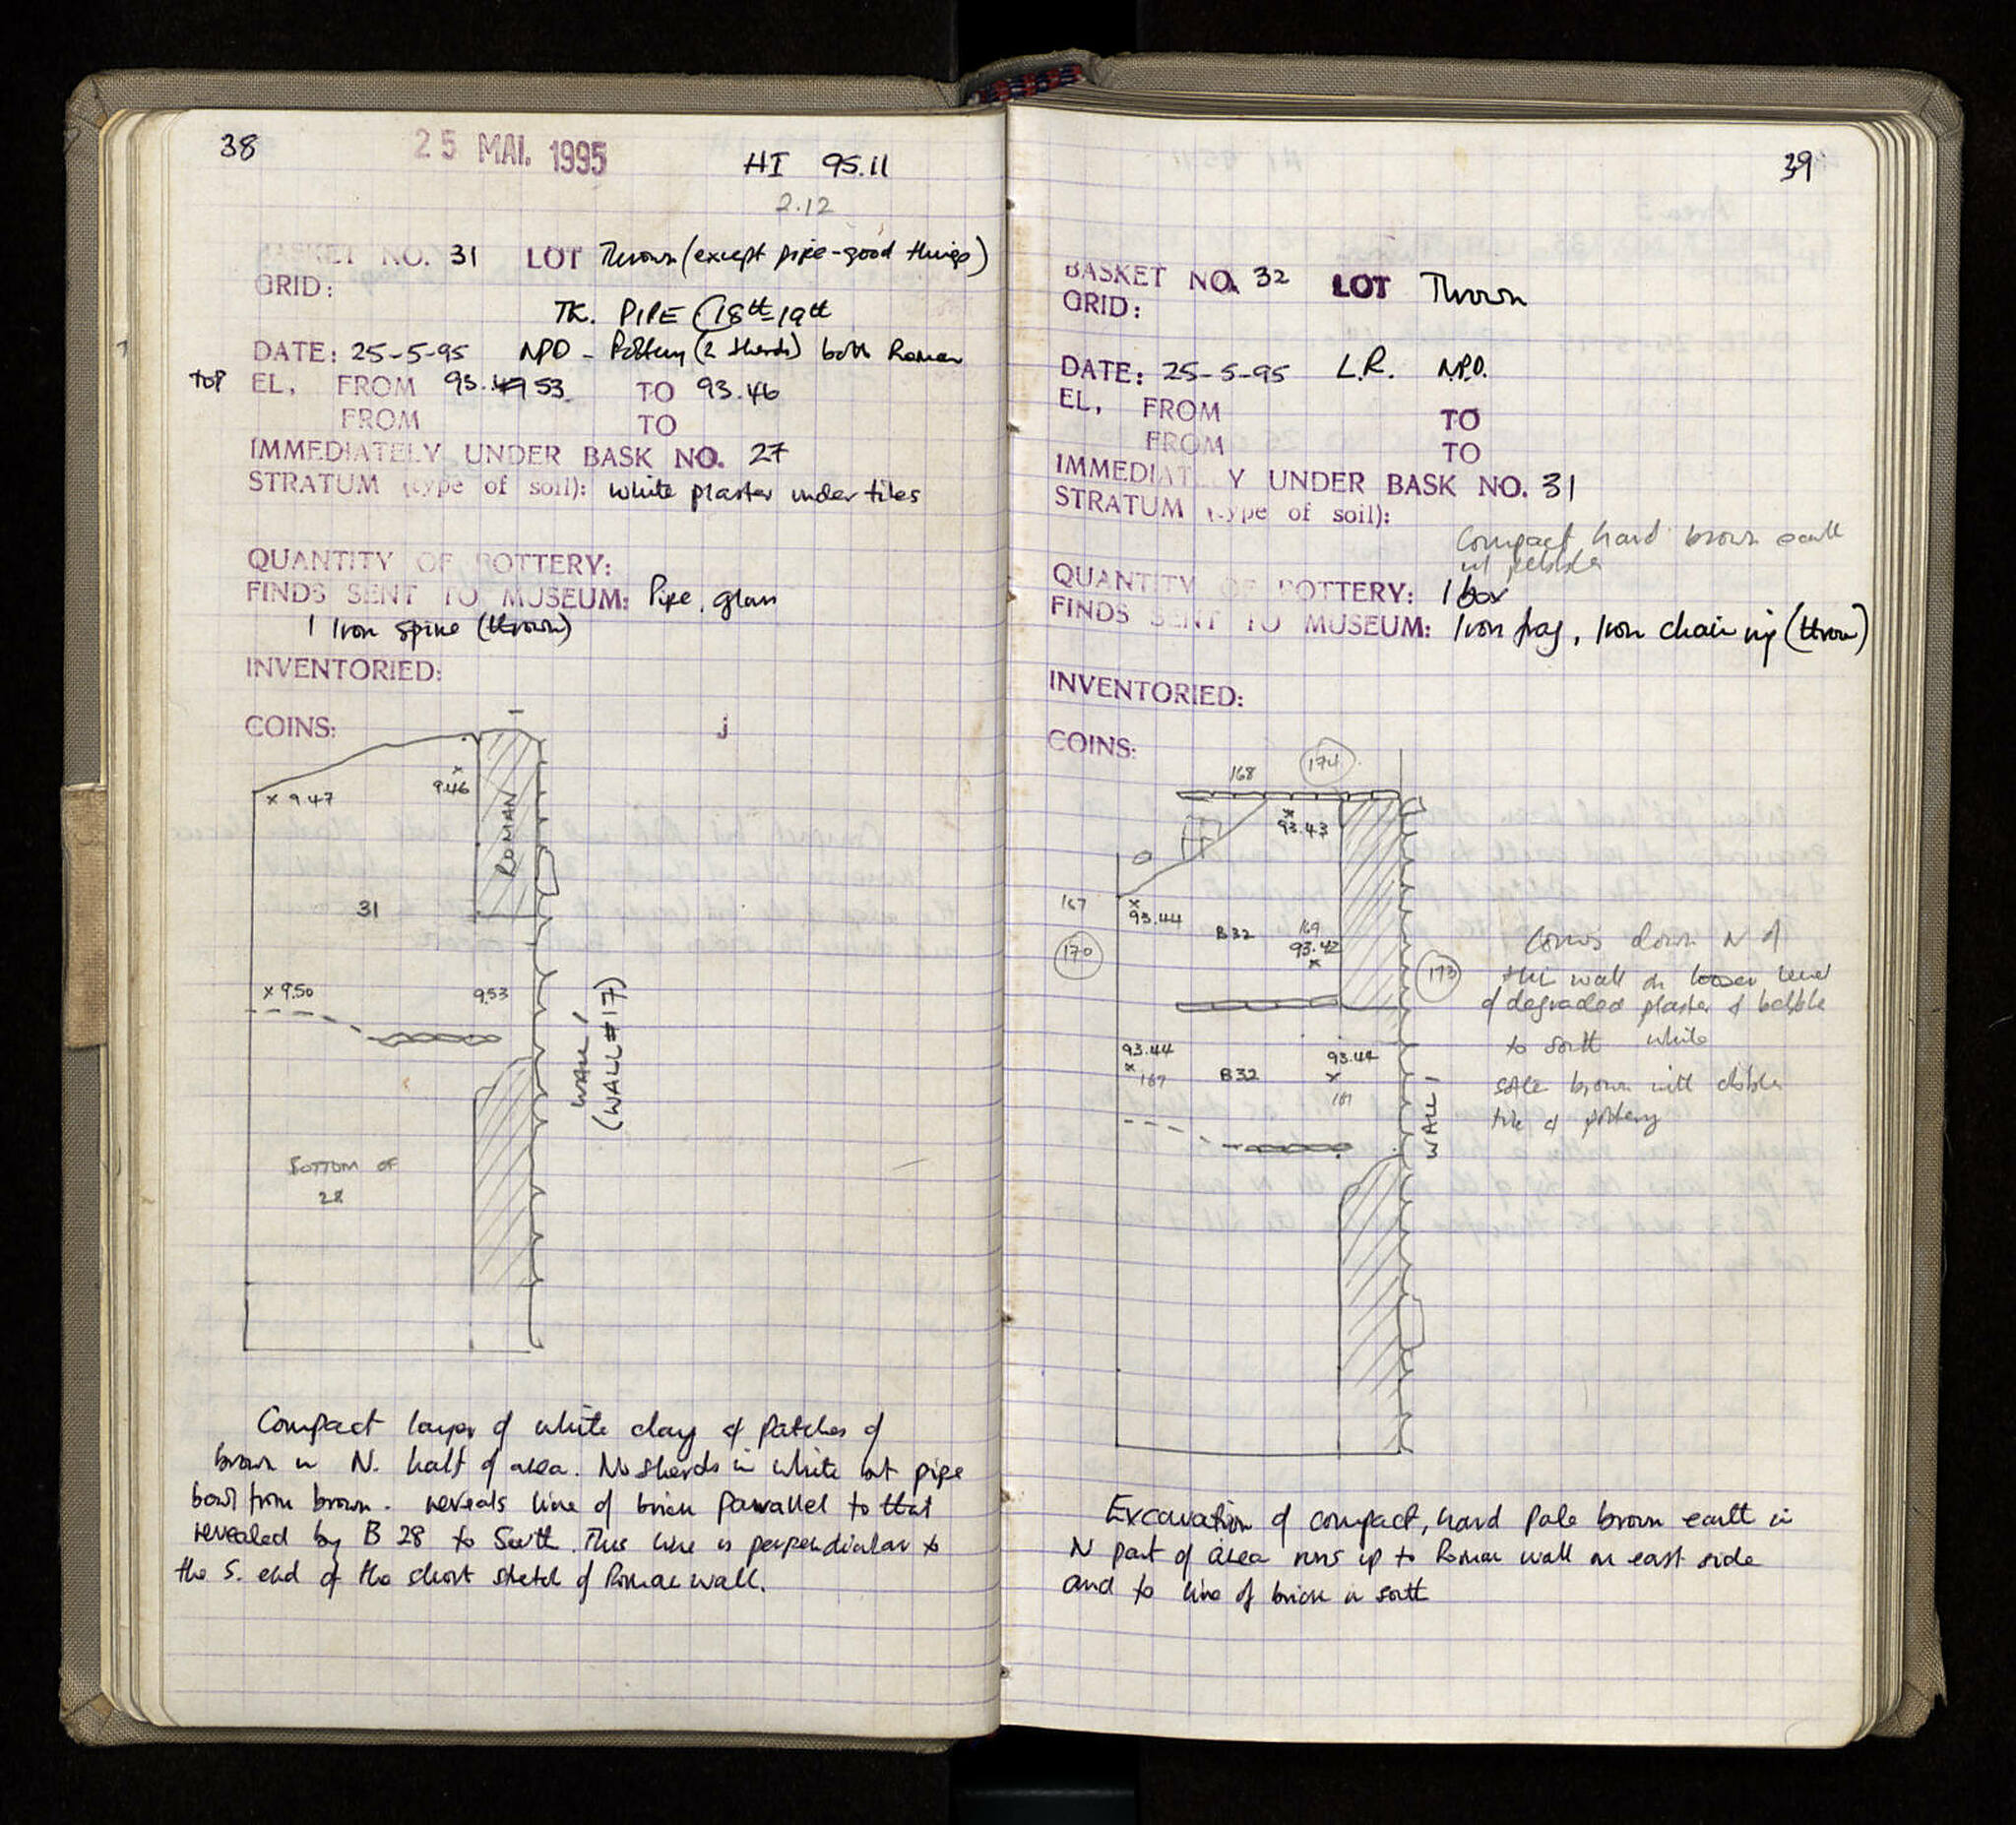 38
25 MAI. 1995
HI 95.11
2.12
BASKET NO. 31 LOT Thrown (except pipe-good things)
GRID:
TK. PIPE (18th-19th
DATE: 25-5-95 NPD - Pottery (2 sherds) both Roman
top EL, FROM 93.53 TO 93.46
FROM TO
IMMEDIATELY UNDER BASK NO. 27
STRATUM (type of soil): white plaster under tiles
QUANTITY OF POTTERY:
FINDS SENT TO MUSEUM: Pipe, glass
1 Iron spike (thrown)
INVENTORIED:
COINS: j
x 9.47
x 9.46
ROMAN
31
x 9.50
9.53
WALL 1
(WALL #17)
BOTTOM OF
28
Compact layer of white clay & patches of
brown in N. half of area. No sherds in white but pipe
bowl from brown. reveals line of brick parallel to that
revealed by B 28 to South. This line is perpendicular to
the S. end of the short stretch of Roman wall.
39
BASKET NO. 32 LOT Thrown
GRID:
DATE: 25-5-95 L.R. N.P.D.
EL, FROM TO
FROM TO
IMMEDIAT Y UNDER BASK NO. 31
STRATUM (type of soil):
Compact hard brown earth
w/ pebbles
QUANTITY OF POTTERY: 1 box
FINDS SENT TO MUSEUM: Iron frag, Iron chain (thrown)
INVENTORIED:
COINS:
168 174
x
93.43
167
x
93.44
170
B32
169
93.42
x
173
93.44
x 167
B32
93.44
x
WALL 1
Comes down N of
this wall on looser level
of degraded plaster & pebble
to south white
brown with
tile & pottery
Excavation of compact, hard pale brown earth in
N part of area runs up to Roman wall on east side
and to line of brick in south